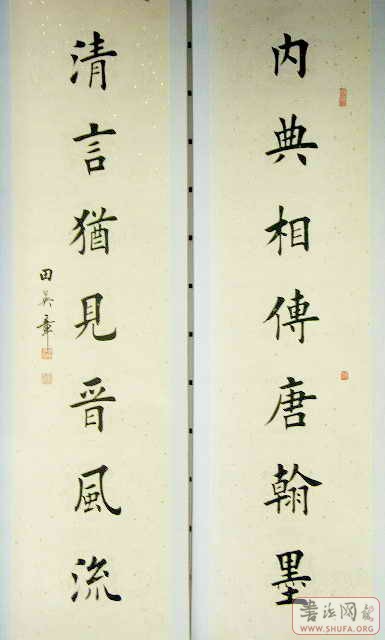 内典相傳唐翰墨
清言猶見晉風流
田英章
書法网
WWW.SHUFA.ORG